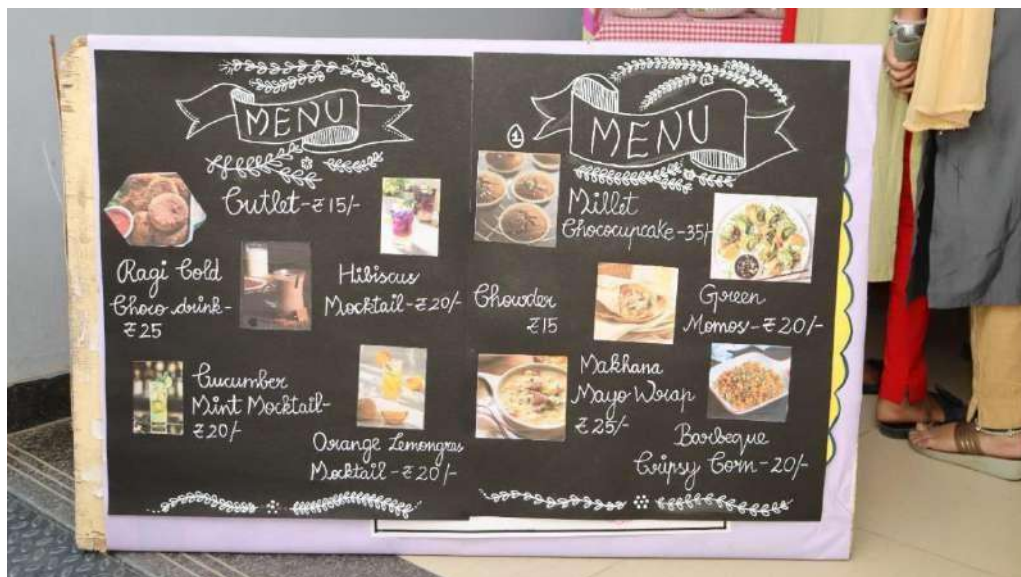 MENU
Cutlet-₹15/-
Ragi Cold
Choco drink-
₹25
Hibiscus
Mocktail-₹20/-
Cucumber
Mint Mocktail-
₹20/-
Orange Lemongras
Mocktail-₹20/-
MENU
1
Millet
Chococupcake-35/-
Chowder
₹15
Green
Momos-₹20/-
Makhana
Mayo Wrap
₹25/-
Barbeque
Cripsy Corn-20/-